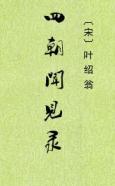 四朝闻见录
〔宋〕叶绍翁